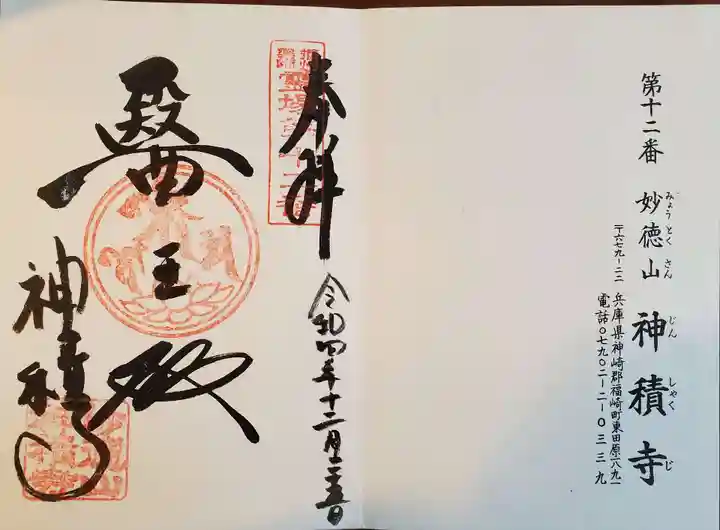 第十二番 妙徳山 神積寺
みょうとくさん じんしゃくじ
〒六七九-二二
兵庫県神崎郡福崎町東田原一八九一
電話〇七九〇-二-二-〇三三九
奉拝
令和四年十二月二十五日
醫王殿
神積寺